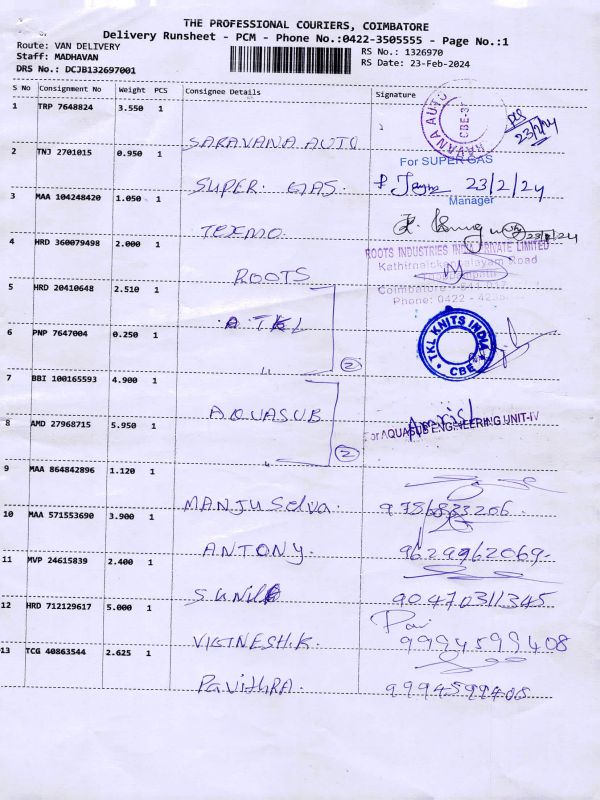 THE PROFESSIONAL COURIERS, COIMBATORE
Delivery Runsheet - PCM - Phone No.:0422-3505555 - Page No.:1
Route: VAN DELIVERY
Staff: MADHAVAN
DRS No.: DCJB132697001
RS No.: 1326970
RS Date: 23-Feb-2024
S No Consignment No Weight PCS Consignee Details Signature
1 TRP 7648824 3.550 1
SARAVANA AUTO CBE-3 23/2/24
2 TNJ 2701015 0.950 1
For SUPER GAS
SUPER GAS. 23/2/24
Manager
3 MAA 104248420 1.050 1
TEXMO.
4 HRD 360079498 2.000 1
ROOTS INDUSTRIES INDIA PRIVATE LIMITED
Kathirnaickenpalayam Road
ROOTS
Coimbatore
Phone: 0422
5 HRD 20410648 2.510 1
TKL
TKL KNITS INDIA CBE
6 PNP 7647004 0.250 1
" 2
7 BBI 100165593 4.900 1
AQUASUB
8 AMD 27968715 5.950 1
For AQUASUB ENGINEERING UNIT-IV
" 2
9 MAA 864842896 1.120 1
MANJU Selva. 9756833206.
10 MAA 571553690 3.900 1
ANTONY. 9629962069.
11 MVP 24615839 2.400 1
SUNIL 90470311345
12 HRD 712129617 5.000 1
VIGNESH.K. 9994599408
13 TCG 40863544 2.625 1
PaviTHRA. 9994599408